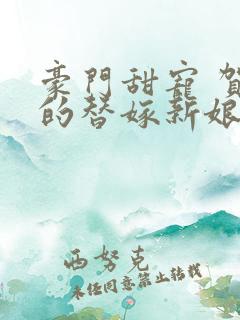 豪門甜寵 賀
的替嫁新娘
西努克
未经同意禁止转载